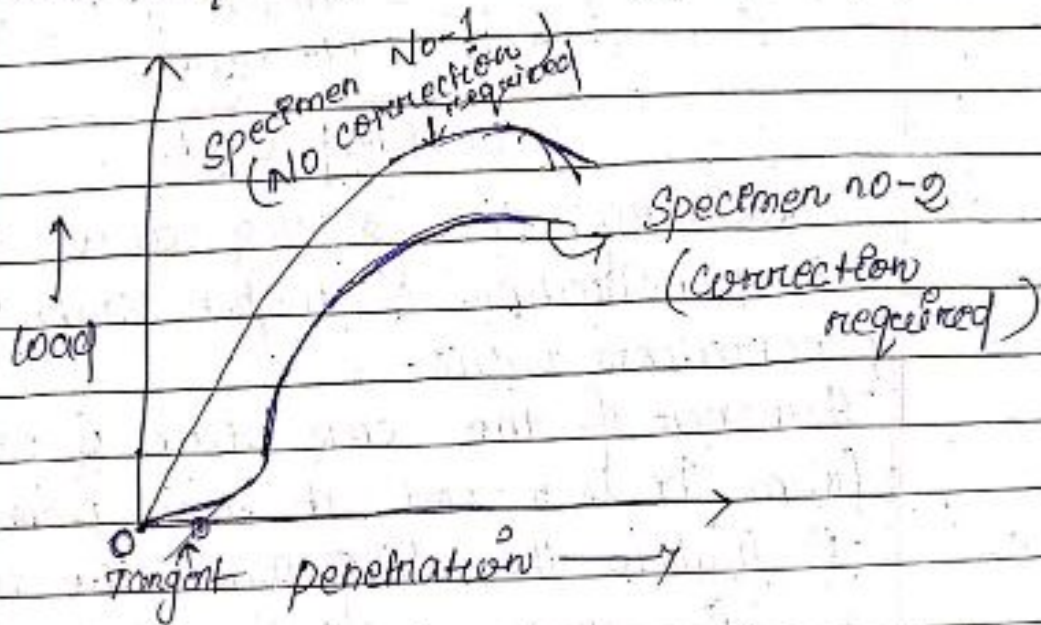 Specimen No-1
(No correction)
required
Specimen no-2
(correction
required)
Load
O
Tangent
penetration